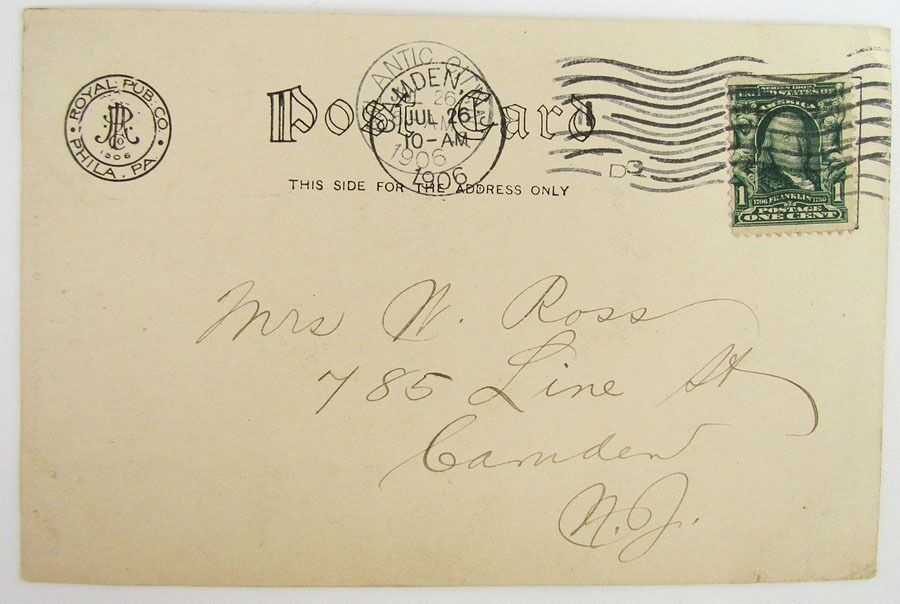 ROYAL PUB. CO.
PHILA. PA.
1906
Post Card
THIS SIDE FOR THE ADDRESS ONLY
ANTIC CITY
26
AM
1906
CAMDEN
JUL 26
10-AM
1906
D3
SERIES 1902
UNITED STATES OF
AMERICA
1 1
1706 FRANKLIN 1790
POSTAGE
ONE CENT
Mrs W. Ross
785 Line St
Camden
N.J.